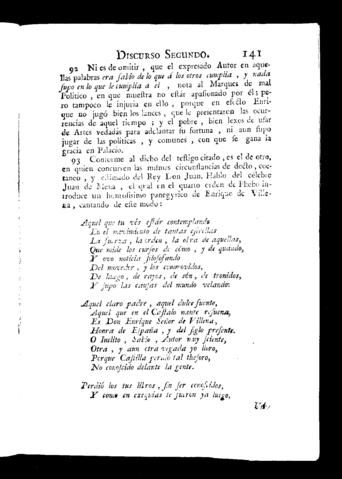 DISCURSO SEGUNDO. 141
92 Ni es de omitir, que el expresado Autor en aque-
llas palabras era sabio de lo que á los otros cumplia, y nada
supo en lo que le cumplia á él, nota al Marques de mal
Politico, en que muestra no estár apasionado por él: pe-
ro tampoco le injuria en ello, porque en efecto Enri-
que no jugó bien los lances, que le presentaron las ocur-
rencias de aquel tiempo; y el pobre, bien lexos de usar
de Artes vedadas para adelantar su fortuna, ni aun supo
jugar de las politicas, y comunes, con que se gana la
gracia en Palacio.
93 Conforme al dicho del testigo citado, es el de otro,
en quien concurren las mismas circunstancias de docto, coe-
taneo, y estimado del Rey Don Juan. Hablo del célebre
Juan de Mena, el qual en el quarto orden de Phebo in-
troduce un honrosisimo panegyrico de Enrique de Ville-
na, cantando de este modo:
Aquel que tu vés estár contemplando
En el movimiento de tantas estrellas
La fuerza, la orden, la obra de aquellas,
Que mide los cursos de cómo, y de quando,
Y ovo noticia filosofando
Del movedor, y los conmovidos,
De fuego, de rayos, de són, de tronidos,
Y supo las causas del mundo velando:
Aquel claro padre, aquel dulce fuente,
Aquel que en el Castalo monte resuena,
Es Don Enrique Señor de Villena,
Honra de España, y del siglo presente.
O Inclito, Sabio, Autor muy sciente,
Otra, y aun otra vegada yo lloro,
Porque Castilla perdió tal thesoro,
No conoscido delante la gente.
Perdió los tus libros, sin ser conoscidos,
Y como en exequias te fueron ya luego,